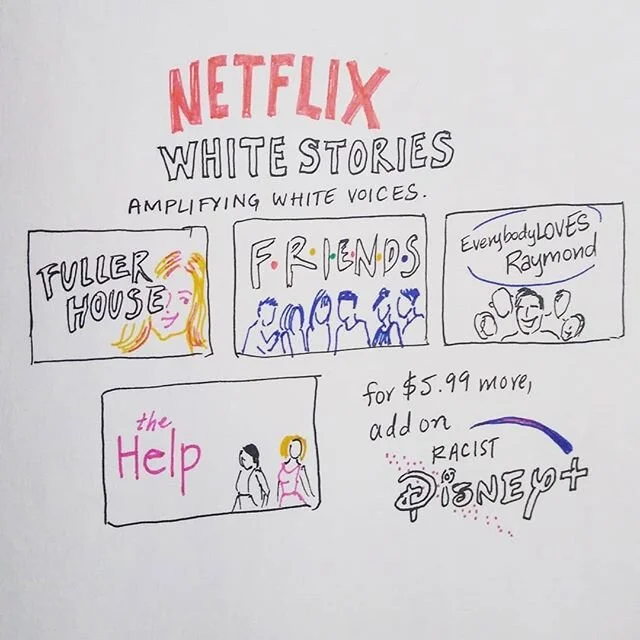 NETFLIX
WHITE STORIES
AMPLIFYING WHITE VOICES.
FULLER
HOUSE
F.R.I.E.N.D.S
EverybodyLOVES
Raymond
the
Help
for $5.99 more,
add on
RACIST
DisNEY+